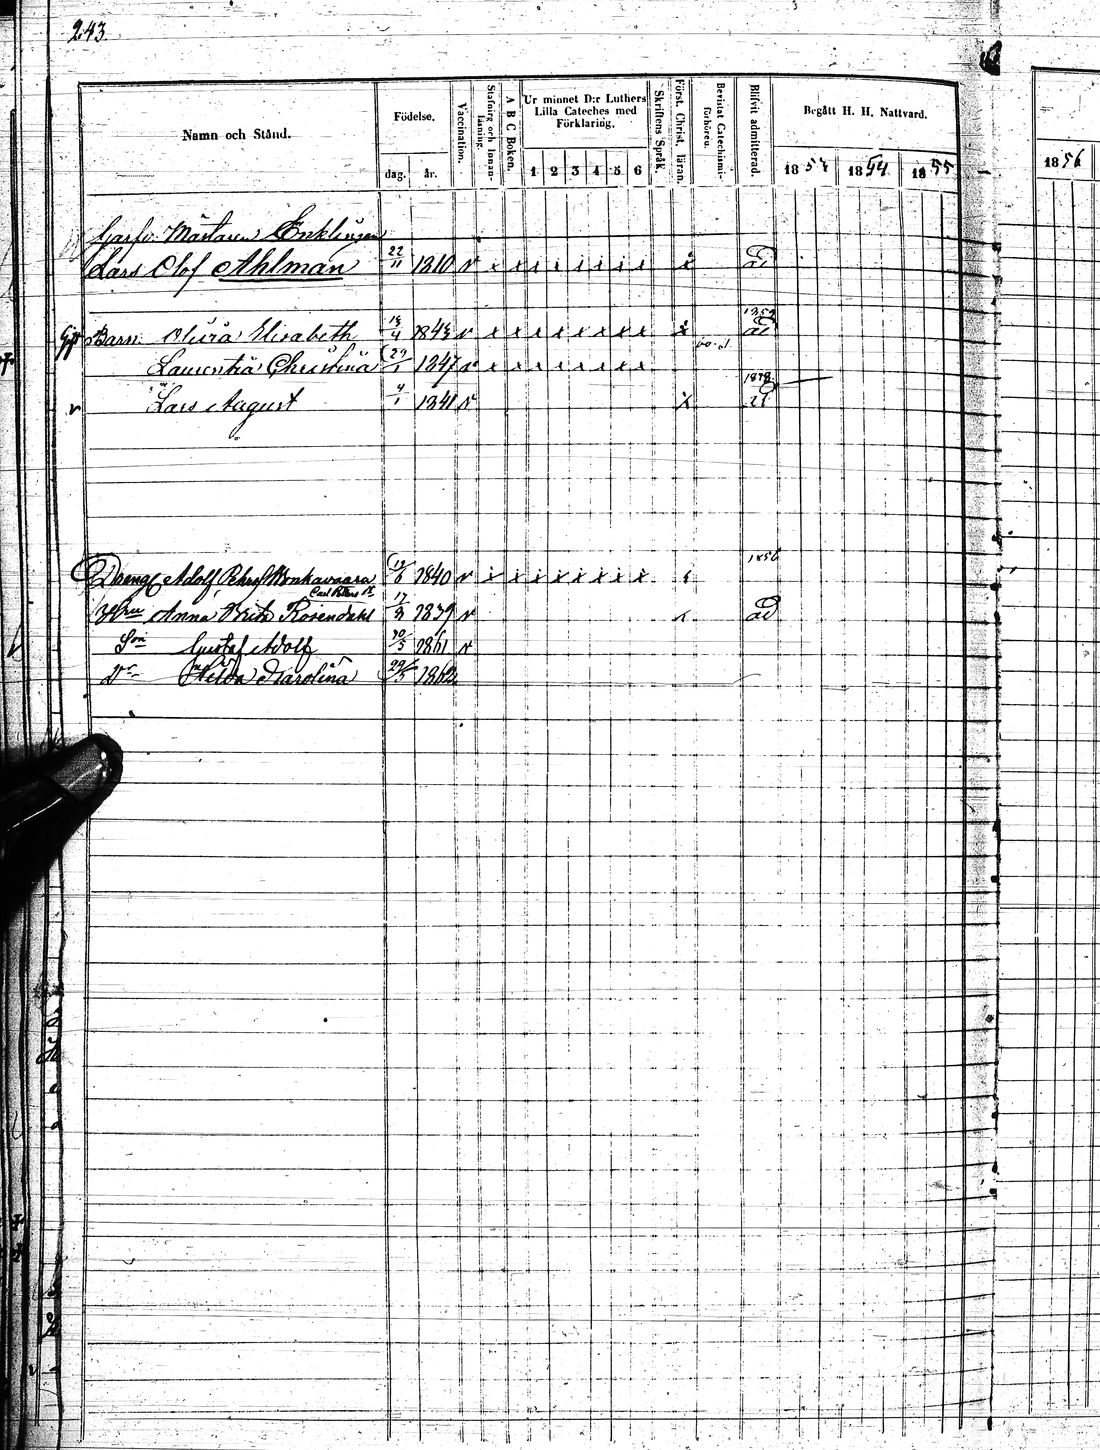 243.
Namn och Stånd. Födelse. dag. år. Vaccination. Stafning och Innanläsning. A B C Boken. Ur minnet D:r Luthers Lilla Cateches med Förklaring. 1 2 3 4 5 6 Skriftens Språk. Först. Christ. läran. Bevistat Catechismiförhören. Blifvit admitterad. Begått H. H. Nattvard. 1854 1855 1856
Garfv. Mästaren Enklingen
Lars Olof Ahlman 22/11 1810 v x x x x x x x x x ad
Gift Barn Olivia Elisabeth 1843 v x x x x x x x x x ad
Laurentia Christina 1847 v x x x x x x x x
v Lars August 4/1 1841 v x ad
1856
Dreng Adolf Pehrsf Monkavaara 1840 v x x x x x x x x
Hru Anna Brita Rosendahl 17/8 1839 v ad
Son Gustaf Adolf 1861 v
Dr Hilda Karolina 29/5 1862